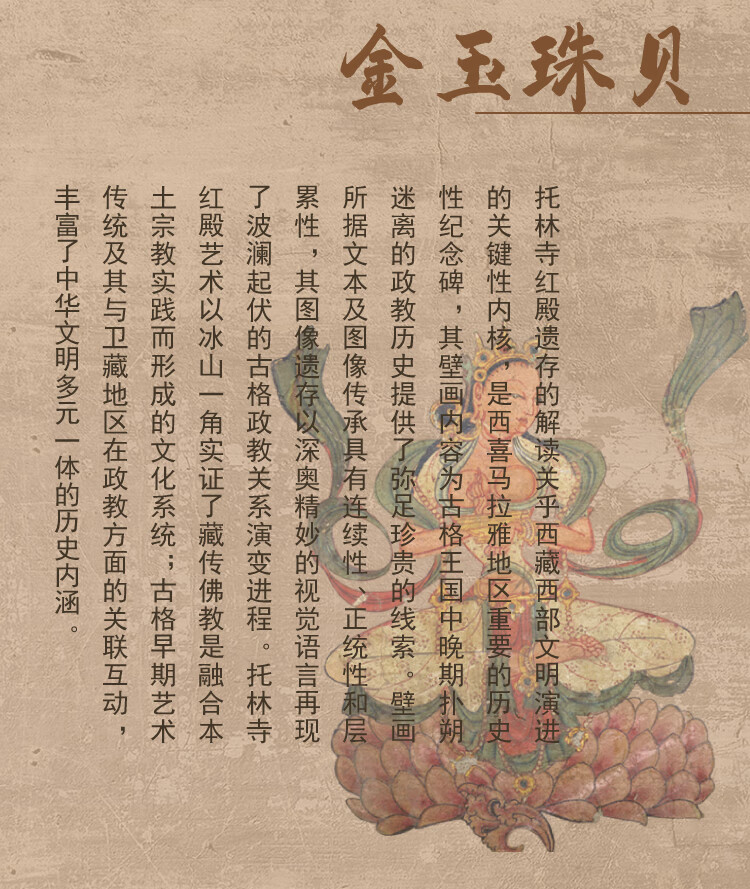 金玉珠贝
托林寺红殿遗存的解读关乎西藏西部文明演进
的关键性内核，是西喜马拉雅地区重要的历史
性纪念碑，其壁画内容为古格王国中晚期扑朔
迷离的政教历史提供了弥足珍贵的线索。壁画
所据文本及图像传承具有连续性、正统性和层
累性，其图像遗存以深奥精妙的视觉语言再现
了波澜起伏的古格政教关系演变进程。托林寺
红殿艺术以冰山一角实证了藏传佛教是融合本
土宗教实践而形成的文化系统；古格早期艺术
传统及其与卫藏地区在政教方面的关联互动，
丰富了中华文明多元一体的历史内涵。